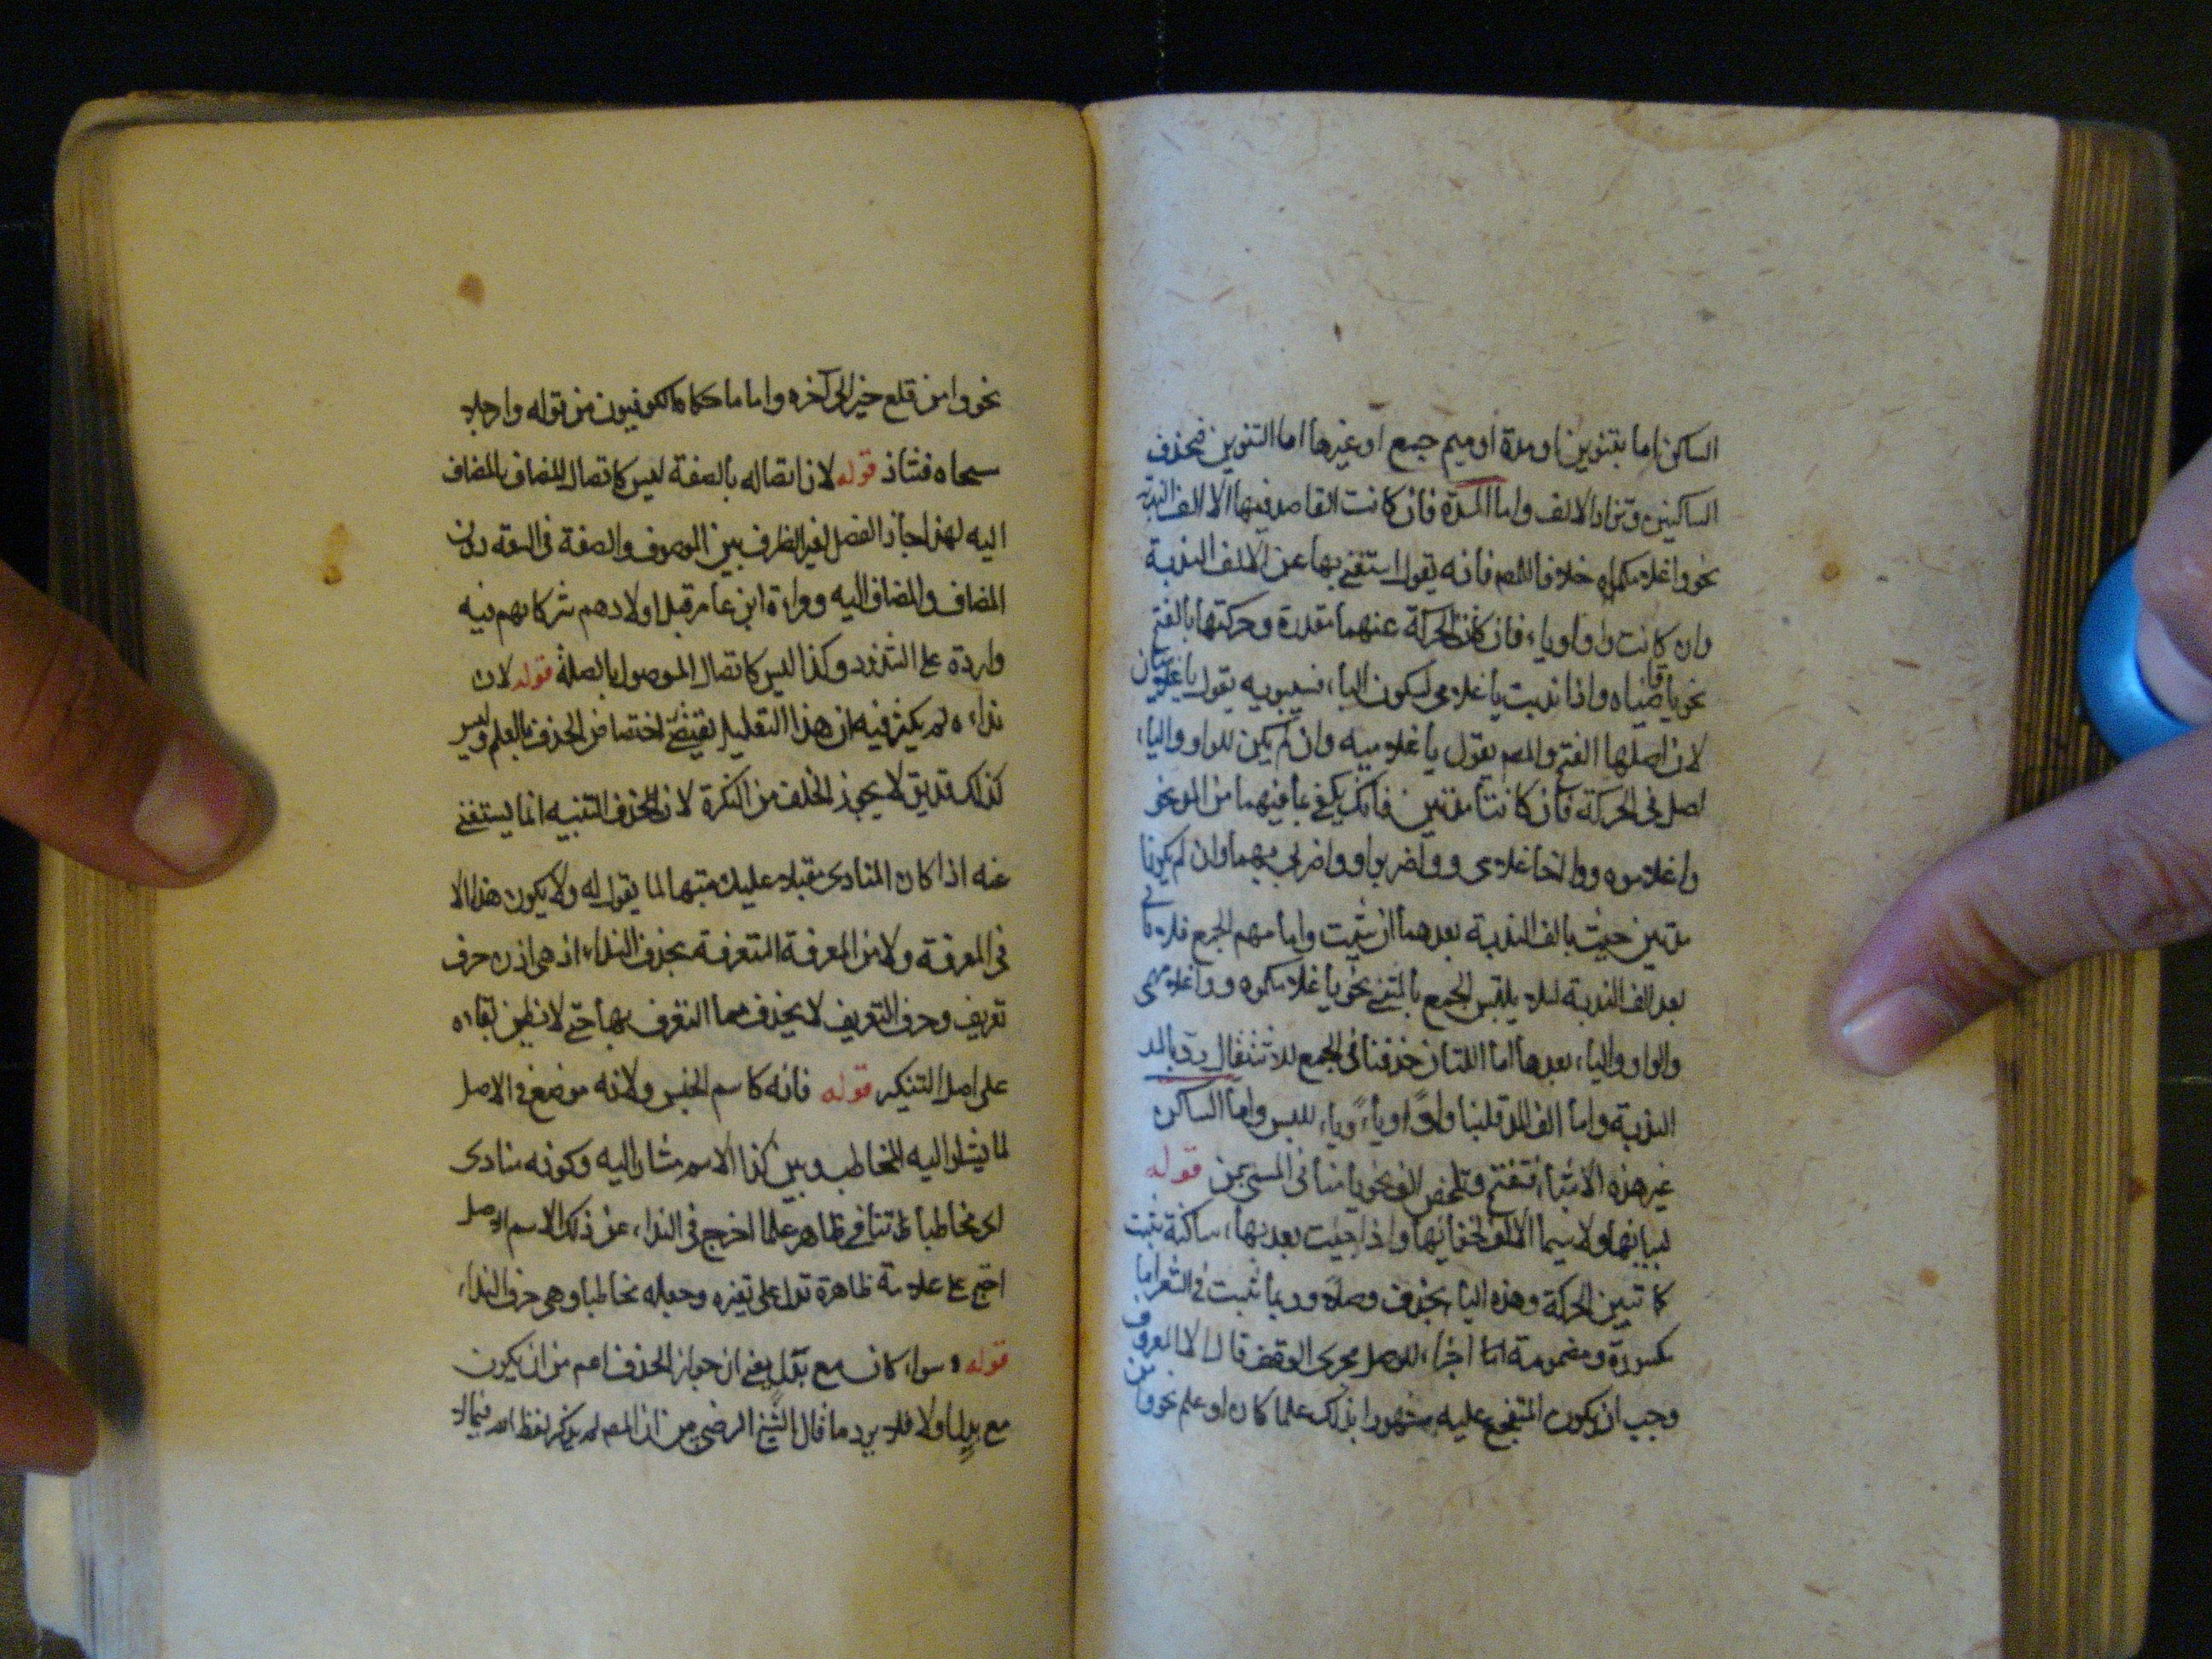 الساكن اما بتنوين او مدة او ميم جمع او غيرها اما التنوين فيحذف
الساكنين وتزاد الالف واما المدة فان كانت الفا حذفها الا الف الندبة
نحو واغلامكماه خلافا للمص فانه يقول استغنى بها عن الالف الندبة
وان كانت واوا وياء فان كان الحركة عنهما مقدرة وحركتها بالفتح
نحو يا قاضياه واذا ندبت يا غلامى بسكون الياء فسيبويه يقول يا غلاميان
لان اصلها الفتح والمص يقول يا غلاميه وان لم يكن للواو والياء
اصل فى الحركة فان كانتا مدتين فانك يكفى بما فيهما من المد نحو
واغلاموه ووا اخا غلامى وواضربوا وواضربى فيهما وان لم يكونا
مدتين جئت بالف الندبة بعدهما ان شئت واما ميم الجمع فلا تاتى
بعد الف الندبة لئلا يلتبس الجمع بالمثنى نحو يا غلامكموه وواغلامهمى
والواو والياء بعدها اما اللتان حذفتا فى الجمع للاستثقال بالمد
الندبة واما الف المد قلبتا واوا وياء للبس واما الساكن
غير هذه الاشياء فتفتح الالف نحو يا منا فى المسمى بمن قوله
لبيانها ولا سيما الالف لخفائها واذا جئت بعد بهاء ساكنة تثبت
كما تبين الحركة وهذه الهاء يحذف وصلا وربما ثبت فى الشعر اما
مكسورة ومضمومة اما اجراء للوصل مجرى الوقف قال الا المعروف
وجب ان يكون المتفجع عليه مشهورا بذلك علما كان او علم نحو وا من
نحو وا من قلع خيبر الى آخره واما ما حكاه الكوفيون من قوله وارجلا
سجاه فشاذ قوله لان اتصاله بالصفة ليس كاتصال المضاف بالمضاف
اليه لهذا جاز الفصل لغير الظرف بين الموصوف والصفة فى السعة دون
المضاف والمضاف اليه وقراءة ابن عامر قتل اولادهم شركائهم فيه
واردة على الشذوذ وكذا ليس كاتصال الموصول بالصلة قوله لان
نداءه لم يكثر فيه ان هذا التعليل يقتضى اختصاص الحذف بالعلم وليس
كذلك قد يق لا يجوز الحذف من النكرة لان الحذف التنبيه انما يستغنى
عنه اذا كان المنادى مقبلا عليك متنبها لما يقول له ولا يكون هذا الا
فى المعرفة ولا من المعرفة المتعرفة بحذف النداء اذ هى اذن حرف
تعريف وحرف التعريف لا يحذف مما التعرف بها حتى لا يظن بقاءه
على اصل التنكير قوله فانه كاسم الجنس ولانه موضع فى الاصل
لما يشار اليه للمخاطب وبين كذا الاسم مشارا اليه وكونه منادى
اى مخاطبا تنافى ظاهر علما اخرج فى النداء عن ذلك الاسم الاصل
احتيج على علامة ظاهرة تدل على تغيره وجعله مخاطبا وهى حرف النداء
قوله سواء كان مع بدل يعنى ان جواز الحذف اعم من ان يكون
مع بدل اولا فلا يرد ما قال الشيخ الرضى من ان المص لم يذكر لفظ الله فيما لا